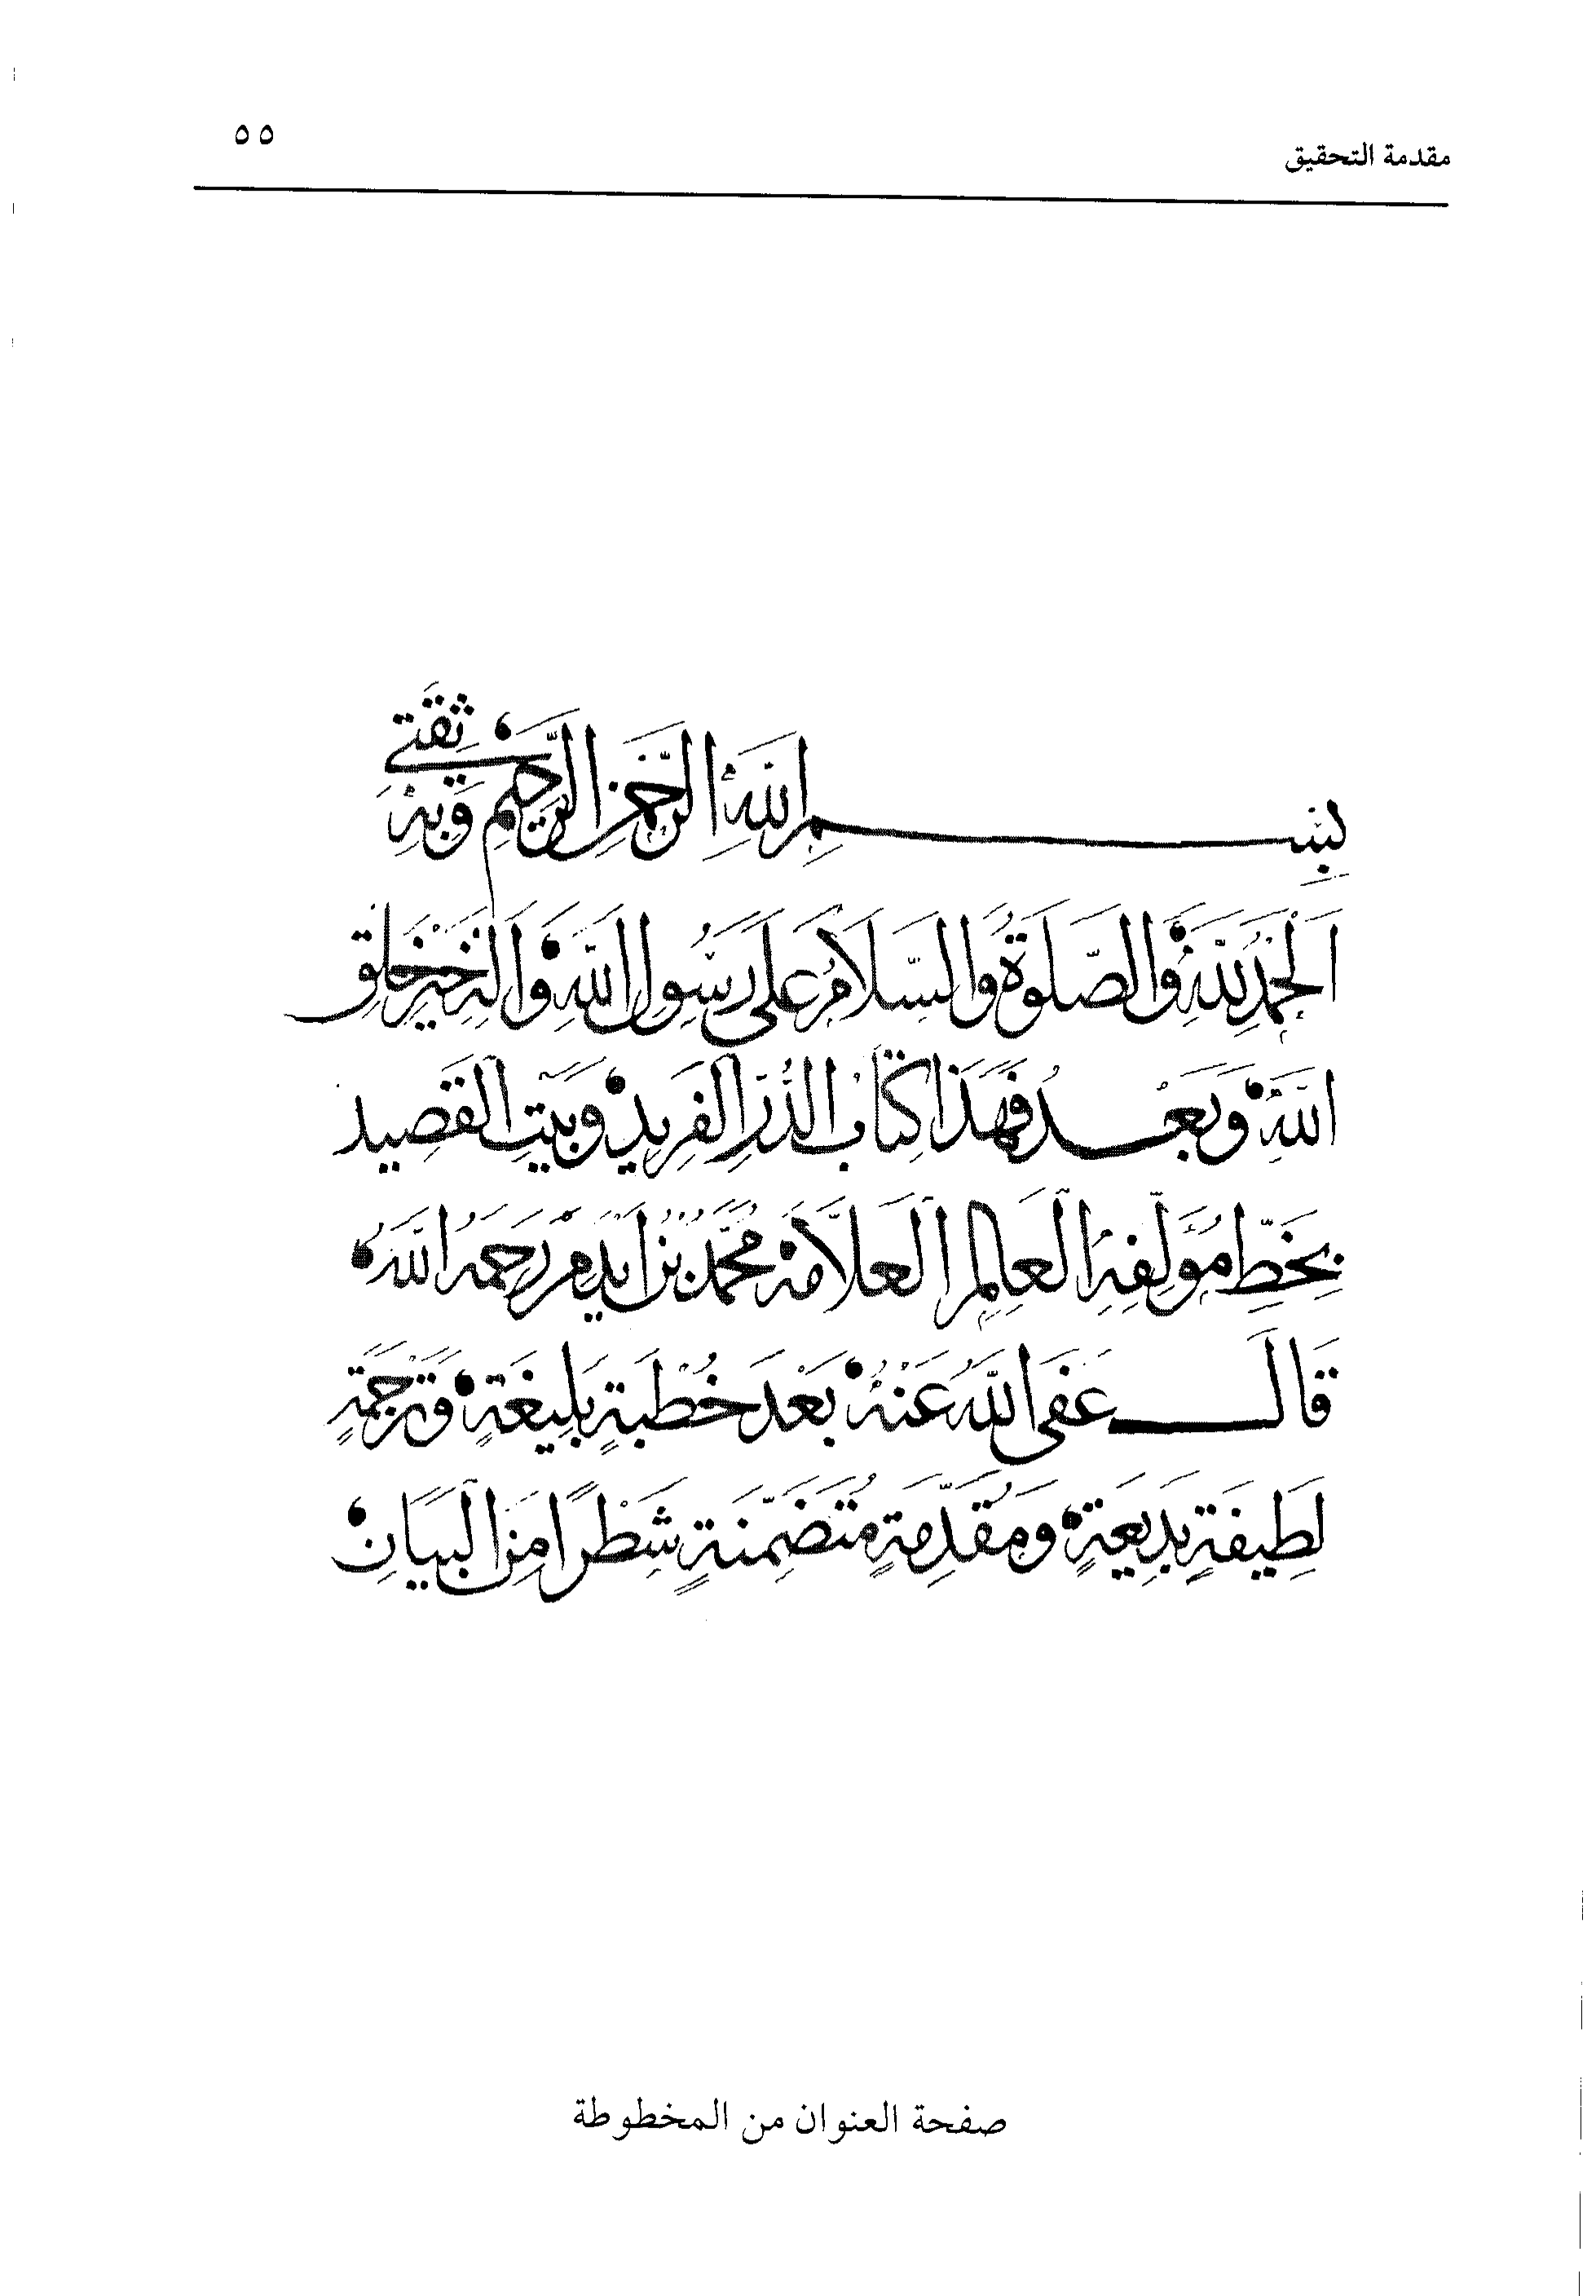 مقدمة التحقيق
٥٥
بِسْمِ اللهِ الرَّحْمَنِ الرَّحِيمِ وَبِهِ ثِقَتِي
اَلْحَمْدُ لِلَّهِ وَالصَّلَوةُ وَالسَّلَامُ عَلَى رَسُولِ اللهِ وَالِهِ خَيْرِ خَلْقِ
اللهِ وَبَعْدُ فَهَذَا كِتَابُ الدُّرِّ الفَرِيدِ وَبَيْتِ القَصِيدِ
بِخَطِّ مُؤَلِّفِهِ العَالِمِ العَلاَّمَةِ مُحَمَّدِ بْنِ أَيْدَمُرَ رَحِمَهُ اللهُ
قَالَ عَفَى اللهُ عَنْهُ بَعْدَ خُطْبَةٍ بَلِيغَةٍ وَتَرْجَمَةٍ
لَطِيفَةٍ بَدِيعَةٍ وَمُقَدِّمَةٍ مُتَضَمِّنَةٍ شَطْرًا مِنَ البَيَانِ
صفحة العنوان من المخطوطة